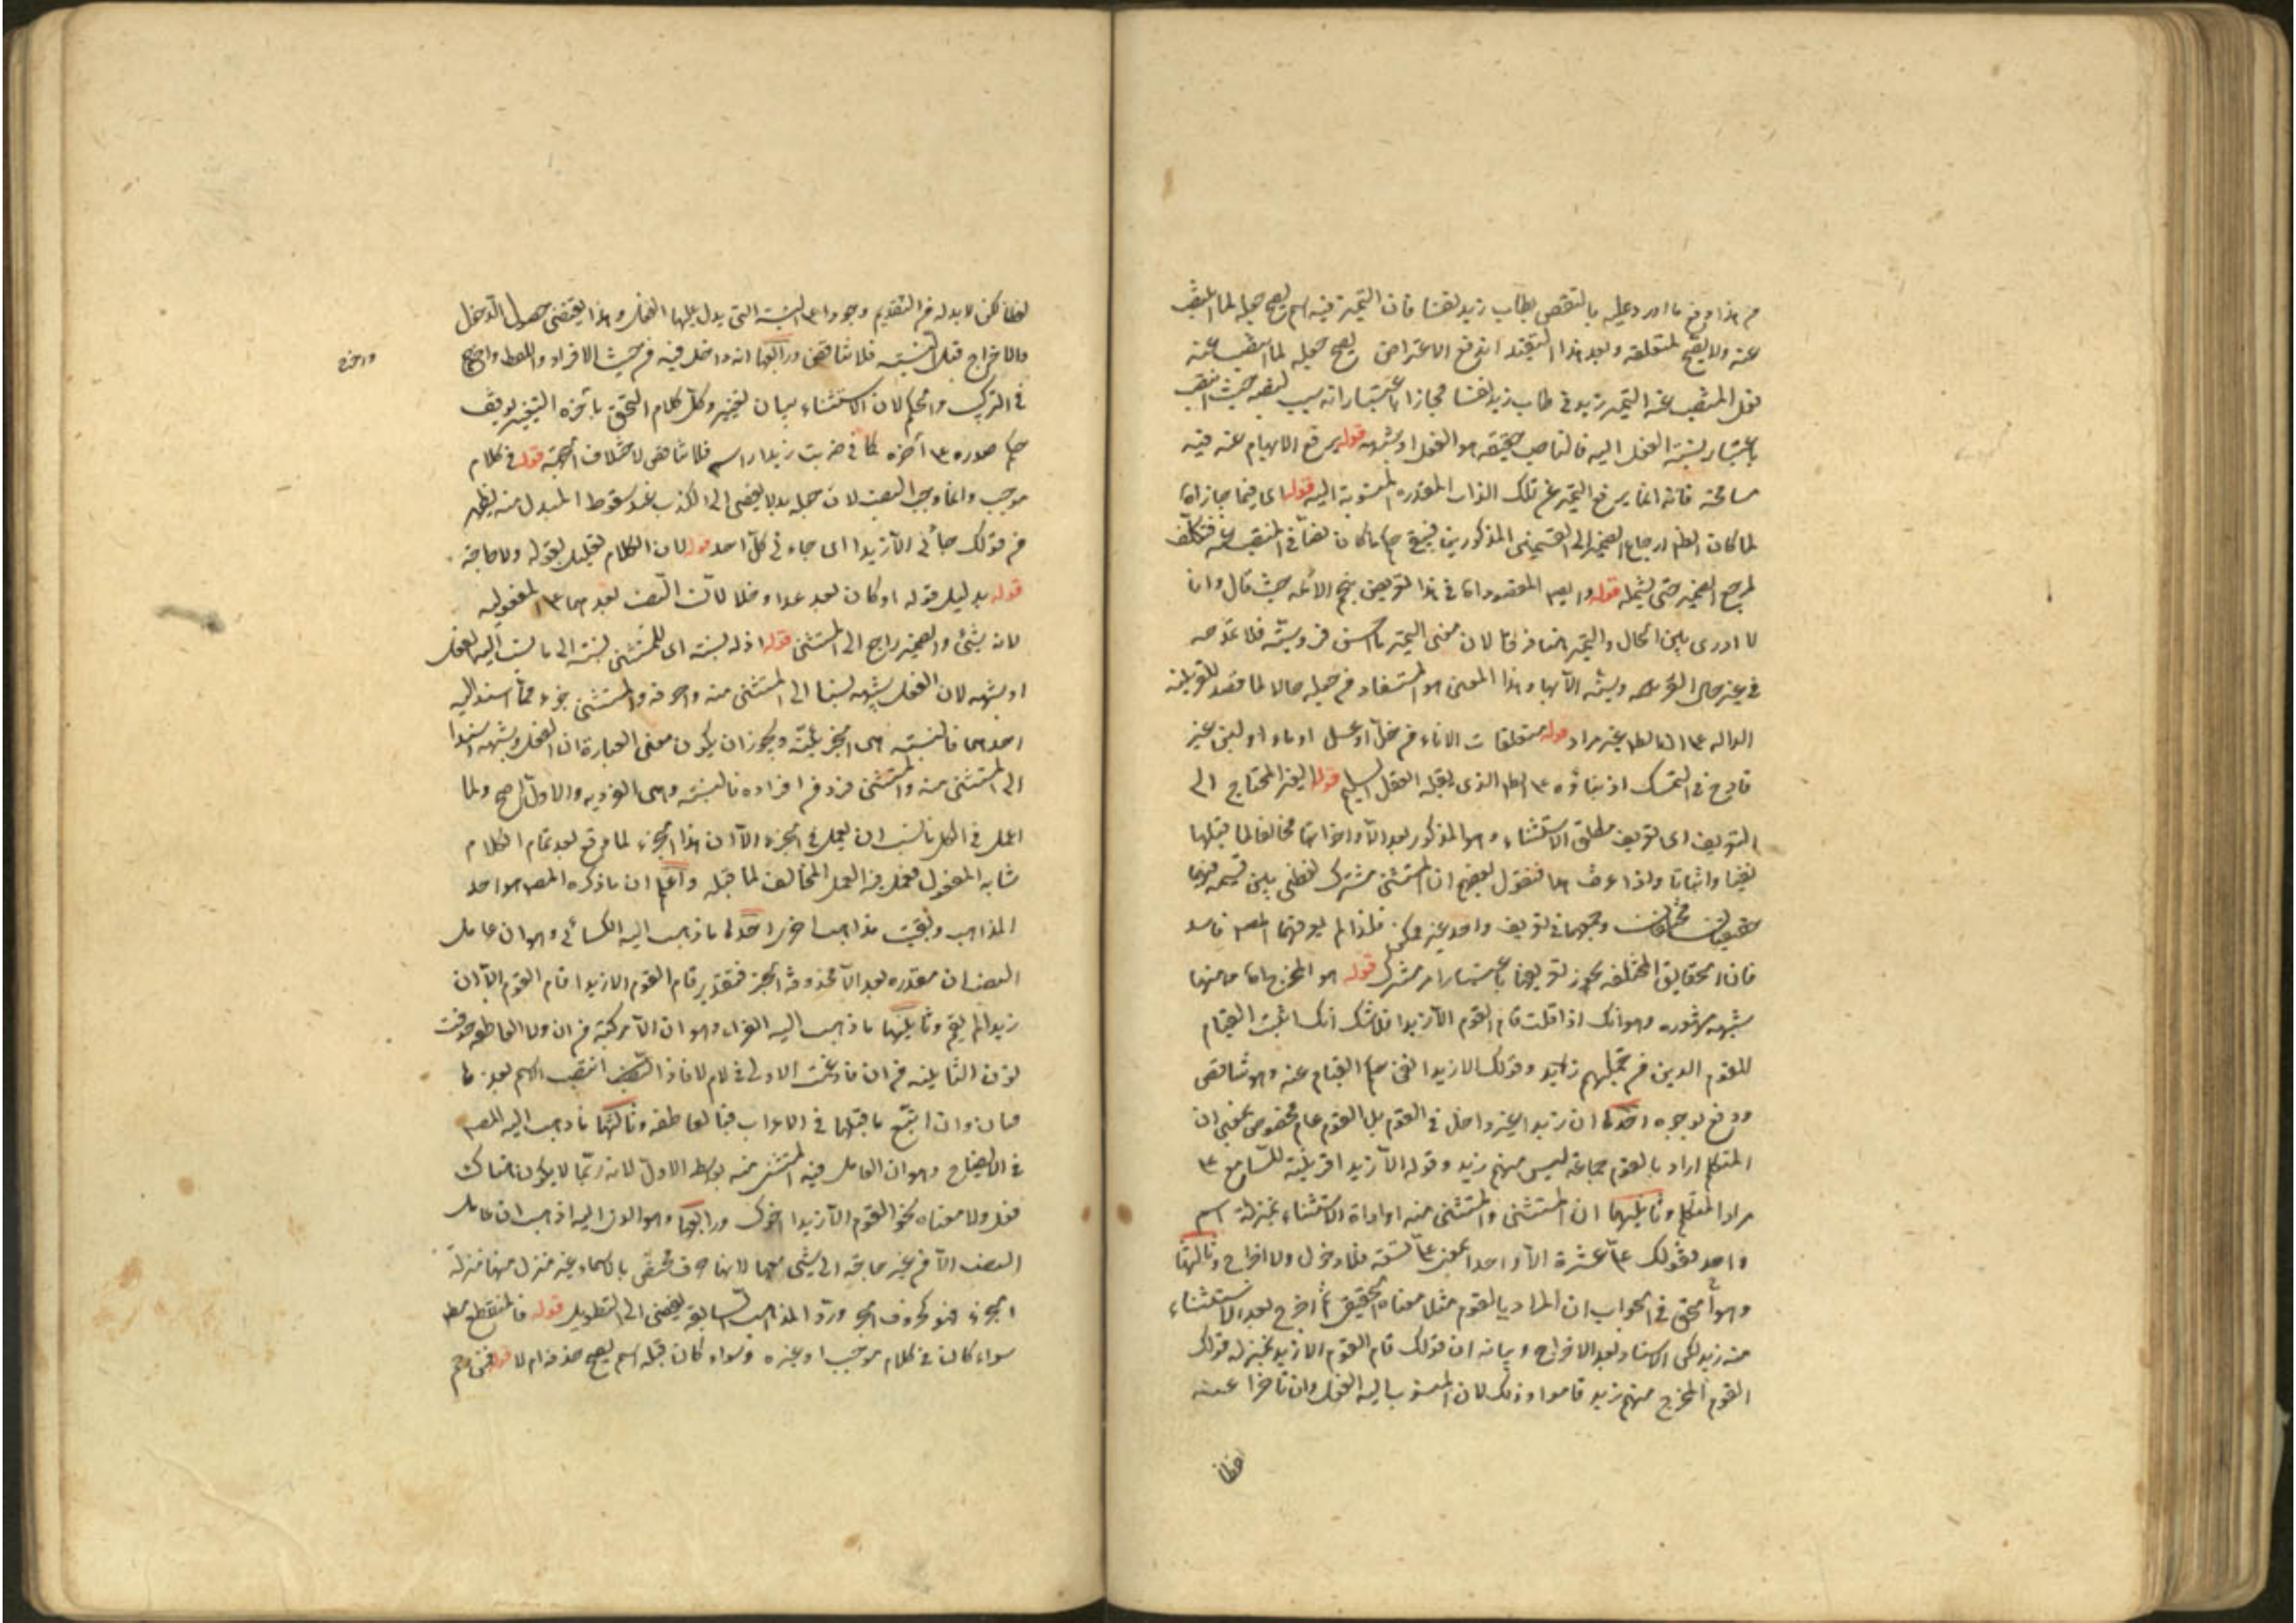 من هذا دفع ما اورد عليه بالنقض بطاب زيد نفسا فان التميز فيه اسم يصح جعله لما انتصب
عنه ولا يصح لمتعلقه وبعد هذا التقييد اندفع الاعتراض يصح جعله لما انتصب عنه
نفل المنتصب عنه التميز زيد في طاب زيد نفسا مجازا باعتبار انه سبب لنصبه حيث انتصب
باعتبار نسبة الفعل اليه فالناصب حقيقة هو الفعل او شبهه قوله يرفع الابهام عنه فيه
مسامحة فانه انما يرفع التميز عن تلك الذات المقدرة المنسوبة اليه قوله
لما كان الظ ارجاع الضمير الى القسمين المذكورين
لمرجع الضمير حتى يشمله قوله
لا ادرى بين الحال والتميز فرقا لان معنى التميز ما احسن فروسيته فلا تمدحه
في غير حال الفروسية الا بها وهذا المعنى هو المستفاد من جعله حالا
غير مراد قوله متعلقات الاناء من خل او عسل او ماء او لبن غير
قادح في التمسك اذ بناؤه على الظ الذى يقبله العقل السليم قوله الغير المحتاج الى
التعريف اى تعريف مطلق الاستثناء وهو المذكور بعد الا واخواتها مخالفا لما قبلها
نفيا واثباتا واذا عرفت هذا فنقول بعضهم ان المستثنى مشترك لفظى بين قسميه فهما
حقيقتان مختلفتان وجمعهما في تعريف واحد غير ممكن فلذا لم يعرفهما المص فاسد
فان الحقايق المختلفة يجوز تعريفها باعتبار امر مشترك قوله هو المخرج
شبهة مشهورة وهو انك اذا قلت قام القوم الا زيدا فلا شك انك اثبت القيام
للقوم الذين من جملتهم زيد وقولك الا زيدا نفى القيام عنه وهو تناقض
ودفع بوجوه احدها ان زيدا غير داخل في القوم بل القوم عام مخصوص بمعنى ان
المتكلم اراد بالقوم جماعة ليس منهم زيد وقوله الا زيدا قرينة للسامع على
مراد المتكلم وثانيها ان المستثنى والمستثنى منه واداة الاستثناء بمنزلة اسم
واحد فقولك على عشرة الا واحدا بمعنى على تسعة فلا دخول ولا اخراج وثالثها
وهو الحق في الجواب ان المراد بالقوم مثلا معناه الحقيقى ثم اخرج بعد الاستثناء
منه زيد لكن الاسناد بعد الاخراج وبيانه ان قولك قام القوم الا زيد بمنزلة قولك
القوم المخرج منهم زيد قاموا وذلك لان المنسوب اليه الفعل وان تاخرا عنه
لفظا
لفظا لكن لا بد له من التقديم وجودا على النسبة التى يدل عليها الفعل وهذا يقتضى حصول الدخول
والاخراج قبل النسبة فلا تناقض ورابعها انه داخل فيه من حيث الافراد
واخرج
في التركيب والحكم لان الاستثناء بيان تغيير وكل كلام التحق بآخره التغيير توقف
حكم صدره على آخره كما في ضربت زيدا راسه فلا تناقض لاختلاف الجهة قوله في كلام
موجب وانما وجب النصب لان جعله بدلا يفضى الى الكذب عند سقوط المبدل منه يظهر
من قولك جاءنى الا زيدا اى جاءنى كل احد قوله لان الكلام تعليل لقوله ولا حاجة
قوله بدليل قوله او كان بعد عدا وخلا لان النصب بعدهما على المفعولية
لان شيئ والضمير راجع الى المستثنى قوله اذ له نسبة اى للمستثنى نسبة الى ما نسب اليه الفعل
او شبهه لان الفعل وشبهه نسبا الى المستثنى منه والمستثنى جزء مما اسند اليه
احدهما فالنسبة هى الجزئية ويجوز ان يكون معنى العبارة ان الفعل وشبهه اسندا
الى المستثنى منه والمستثنى فرد من افراده فالنسبة هى الفردية والاول اصح ولما
اعمل في الكل ناسب ان يعمل في الجزء الا ان هذا الجزء لما وقع بعد تمام الكلام
شابه المفعول فعمل فيه العمل المخالف لما قبله واعلم ان ما ذكره المص هو احد
المذاهب وبقيت مذاهب اخرى احدها ما ذهب اليه الكسائى وهو ان عامل
النصب ان مقدرة بعد الا محذوفة الخبر فتقدير قام القوم الا زيدا قام القوم الا ان
زيدا لم يقم وثانيها ما ذهب اليه الفراء وهو ان الا مركبة من ان ولا العاطفة حذفت
نون الثانية من ان فادغمت الاولى في لام لا فاذا انتصب الاسم بعدها
فبان وان اتبع ما قبلها في الاعراب فبلا العاطفة وثالثها ما ذهب اليه المص
في الايضاح وهو ان العامل فيه المستثنى منه بواسطة الا ولا لانه ربما لا يكون هناك
فعل ولا معناه نحو القوم الا زيدا اخوك ورابعها وهو
النصب الا من غير حاجة الى شئ معها لانها حرف مختص بالاسماء غير منزل منها منزلة
الجزء فهو كحروف الجر ورد المذاهب السابقة يفضى الى التطويل قوله فالمنقطع
سواء كان في كلام موجب او غيره وسواء كان قبله اسم يصح حذفه ام لا قوله